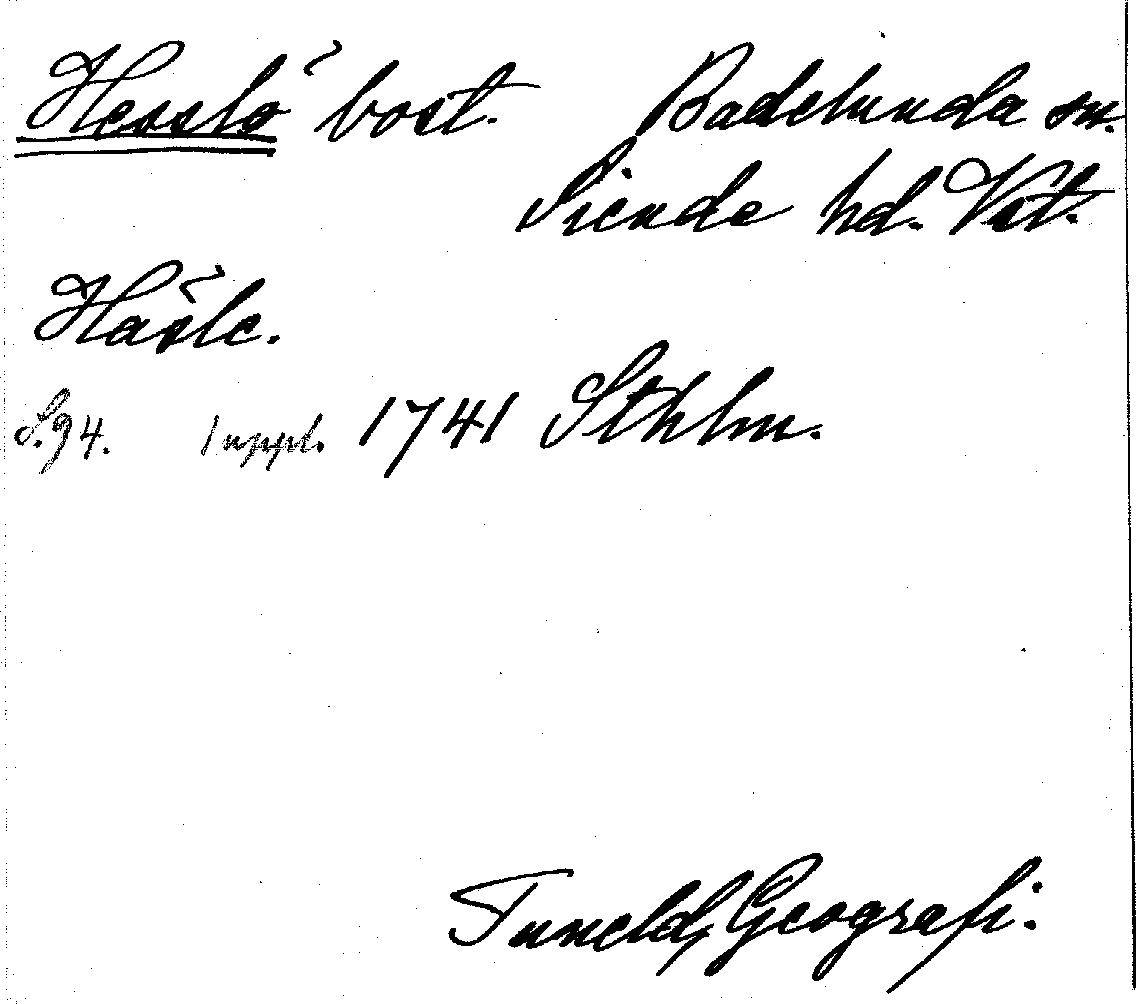 Hesslö bost. Badelunda sn.
Siende hd. Vst.
Häsle.
S.94. 1 uppl. 1741 Sthlm.
Tuneld, Geografi.